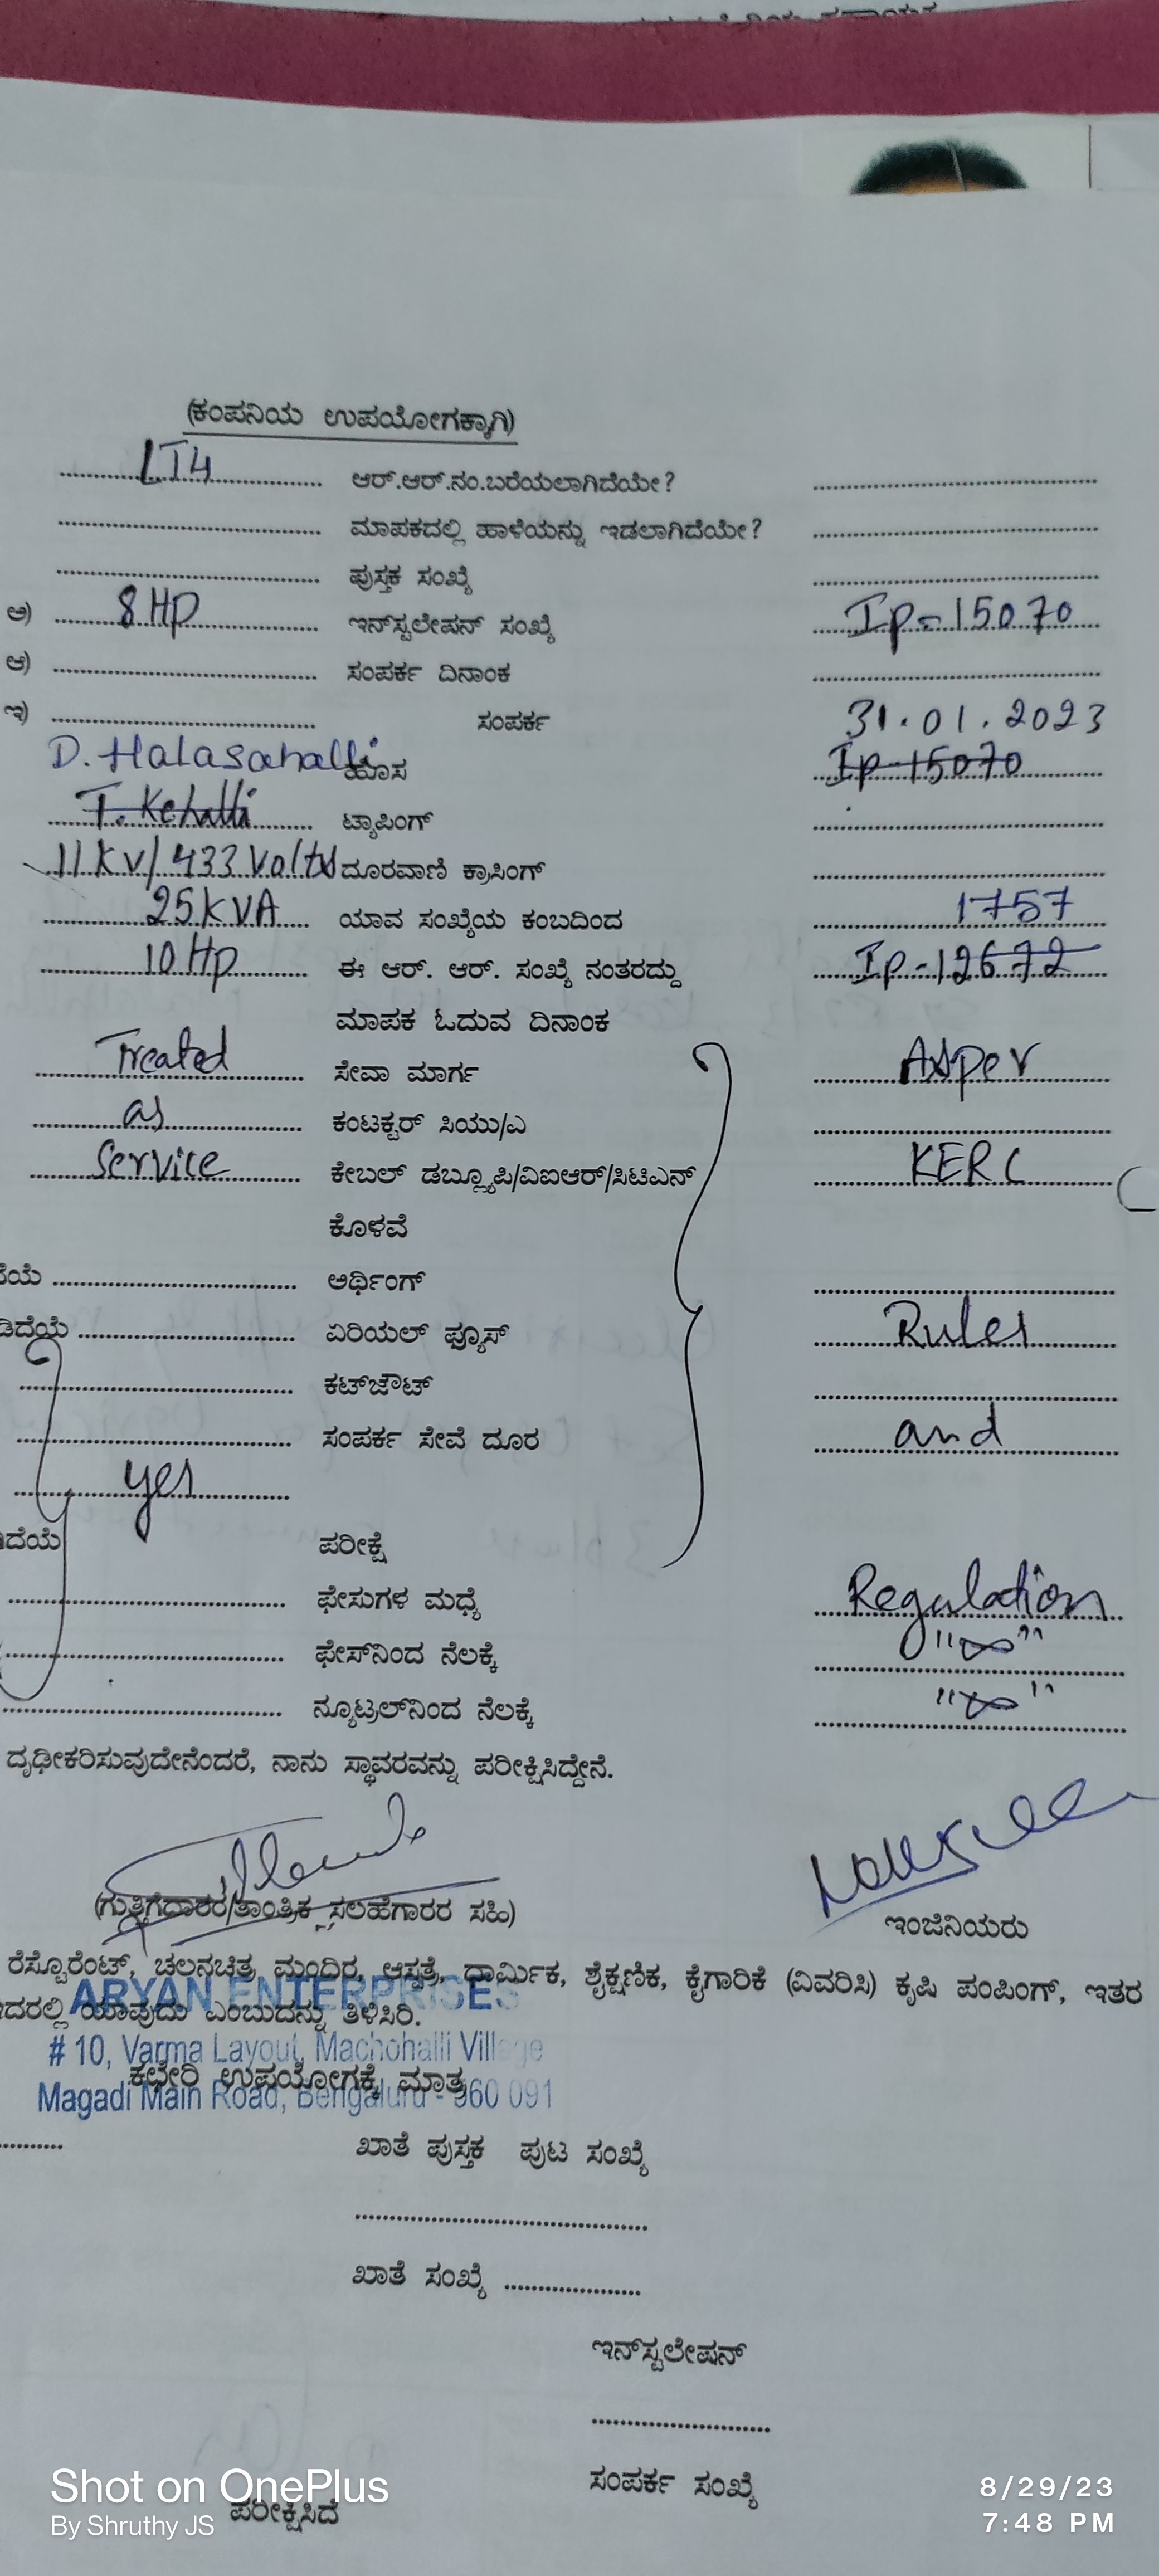 (ಕಂಪನಿಯ ಉಪಯೋಗಕ್ಕಾಗಿ)
LT4 ಆರ್.ಆರ್.ನಂ.ಬರೆಯಲಾಗಿದೆಯೇ?
ಮಾಪಕದಲ್ಲಿ ಹಾಳೆಯನ್ನು ಇಡಲಾಗಿದೆಯೇ?
ಪುಸ್ತಕ ಸಂಖ್ಯೆ
ಅ) 8 HP ಇನ್‌ಸ್ಟಲೇಷನ್ ಸಂಖ್ಯೆ Ip-15070
ಆ) ಸಂಪರ್ಕ ದಿನಾಂಕ
ಇ) ಸಂಪರ್ಕ 31.01.2023
D. Halasahalli ಹೊಸ Ip-15070
T. Kehalli ಟ್ಯಾಪಿಂಗ್
11 KV/433 Volts ದೂರವಾಣಿ ಕ್ರಾಸಿಂಗ್
25 KVA ಯಾವ ಸಂಖ್ಯೆಯ ಕಂಬದಿಂದ 1757
10 Hp ಈ ಆರ್. ಆರ್. ಸಂಖ್ಯೆ ನಂತರದ್ದು Ip-12672
ಮಾಪಕ ಓದುವ ದಿನಾಂಕ
Treated ಸೇವಾ ಮಾರ್ಗ Asper
as ಕಂಟಕ್ಟರ್ ಸಿಯು/ಎ
Service ಕೇಬಲ್ ಡಬ್ಲ್ಯೂಪಿ/ವಿಐಆರ್/ಸಿಟಿಎನ್ KERC
ಕೊಳವೆ
ಅರ್ಥಿಂಗ್
ಏರಿಯಲ್ ಫ್ಯೂಸ್ Rules
ಕಟ್‌ಔಟ್
ಸಂಪರ್ಕ ಸೇವೆ ದೂರ and
yes
ಪರೀಕ್ಷೆ
ಫೇಸುಗಳ ಮಧ್ಯೆ Regulation
ಫೇಸ್‌ನಿಂದ ನೆಲಕ್ಕೆ "∞"
ನ್ಯೂಟ್ರಲ್‌ನಿಂದ ನೆಲಕ್ಕೆ "∞"
ದೃಢೀಕರಿಸುವುದೇನೆಂದರೆ, ನಾನು ಸ್ಥಾವರವನ್ನು ಪರೀಕ್ಷಿಸಿದ್ದೇನೆ.
(ಗುತ್ತಿಗೆದಾರರ/ತಾಂತ್ರಿಕ ಸಲಹೆಗಾರರ ಸಹಿ) ಇಂಜಿನಿಯರು
ರೆಸ್ಟೊರೆಂಟ್, ಚಲನಚಿತ್ರ ಮಂದಿರ, ಆಸ್ಪತ್ರೆ, ಧಾರ್ಮಿಕ, ಶೈಕ್ಷಣಿಕ, ಕೈಗಾರಿಕೆ (ವಿವರಿಸಿ) ಕೃಷಿ ಪಂಪಿಂಗ್, ಇತರ
ARYAN ENTERPRISES
ಯಾವುದು ಎಂಬುದನ್ನು ತಿಳಿಸಿರಿ.
# 10, Varma Layout, Machohalli Village
ಕಛೇರಿ ಉಪಯೋಗಕ್ಕೆ ಮಾತ್ರ
Magadi Main Road, Bengaluru - 560 091
ಖಾತೆ ಪುಸ್ತಕ ಪುಟ ಸಂಖ್ಯೆ
ಖಾತೆ ಸಂಖ್ಯೆ
ಇನ್‌ಸ್ಟಲೇಷನ್
ಸಂಪರ್ಕ ಸಂಖ್ಯೆ
ಪರೀಕ್ಷಿಸಿದೆ
Shot on OnePlus
By Shruthy JS
8/29/23
7:48 PM